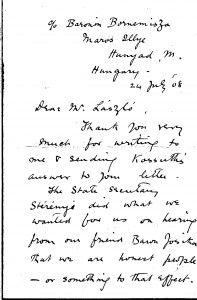 c/o Baronin Bornemisza
Maros Illye
Hunyad, M.
Hungary -
24 July '08
Dear Mr. László,
Thank you very
much for writing to
me & sending Kossuth's
answer to your letter.
The State Secretary
Sterényi did what we
wanted for us on hearing
from our friend Baron Josika
that we are honest people
- or something to that effect.